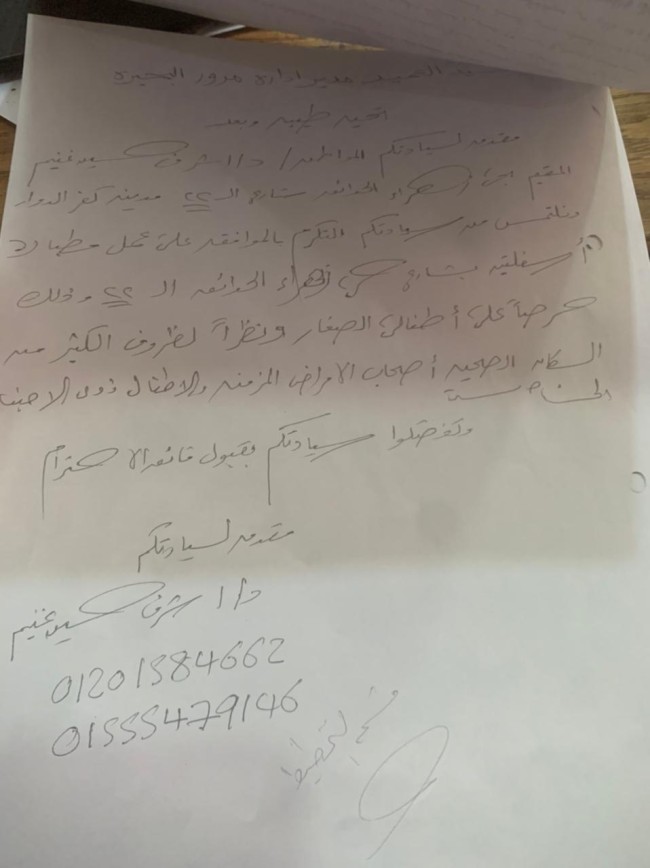 مدير ادارة مرور البحيره
تحيه طيبه وبعد
مقدمه لسيادتكم المواطن / د/ اشرف حسين غنيم
المقيم بحى زهراء الحدائق شارع الـ 22 مدينه كفر الدوار
ونلتمس من سيادتكم التكرم بالموافقه على عمل مطبات
أسفلتيه بشارع حى زهراء الحدائق الـ 22 وذلك
حرصاً على أطفالى الصغار ونظراً لظروف الكثير من
السكان الصحيه أصحاب الأمراض المزمنه والاطفال ذوى الاحتيا
الخاصة
وتفضلوا سيادتكم بقبول فائق الاحترام
مقدمه لسيادتكم
د/ اشرف حسين غنيم
01201584662
01555479146